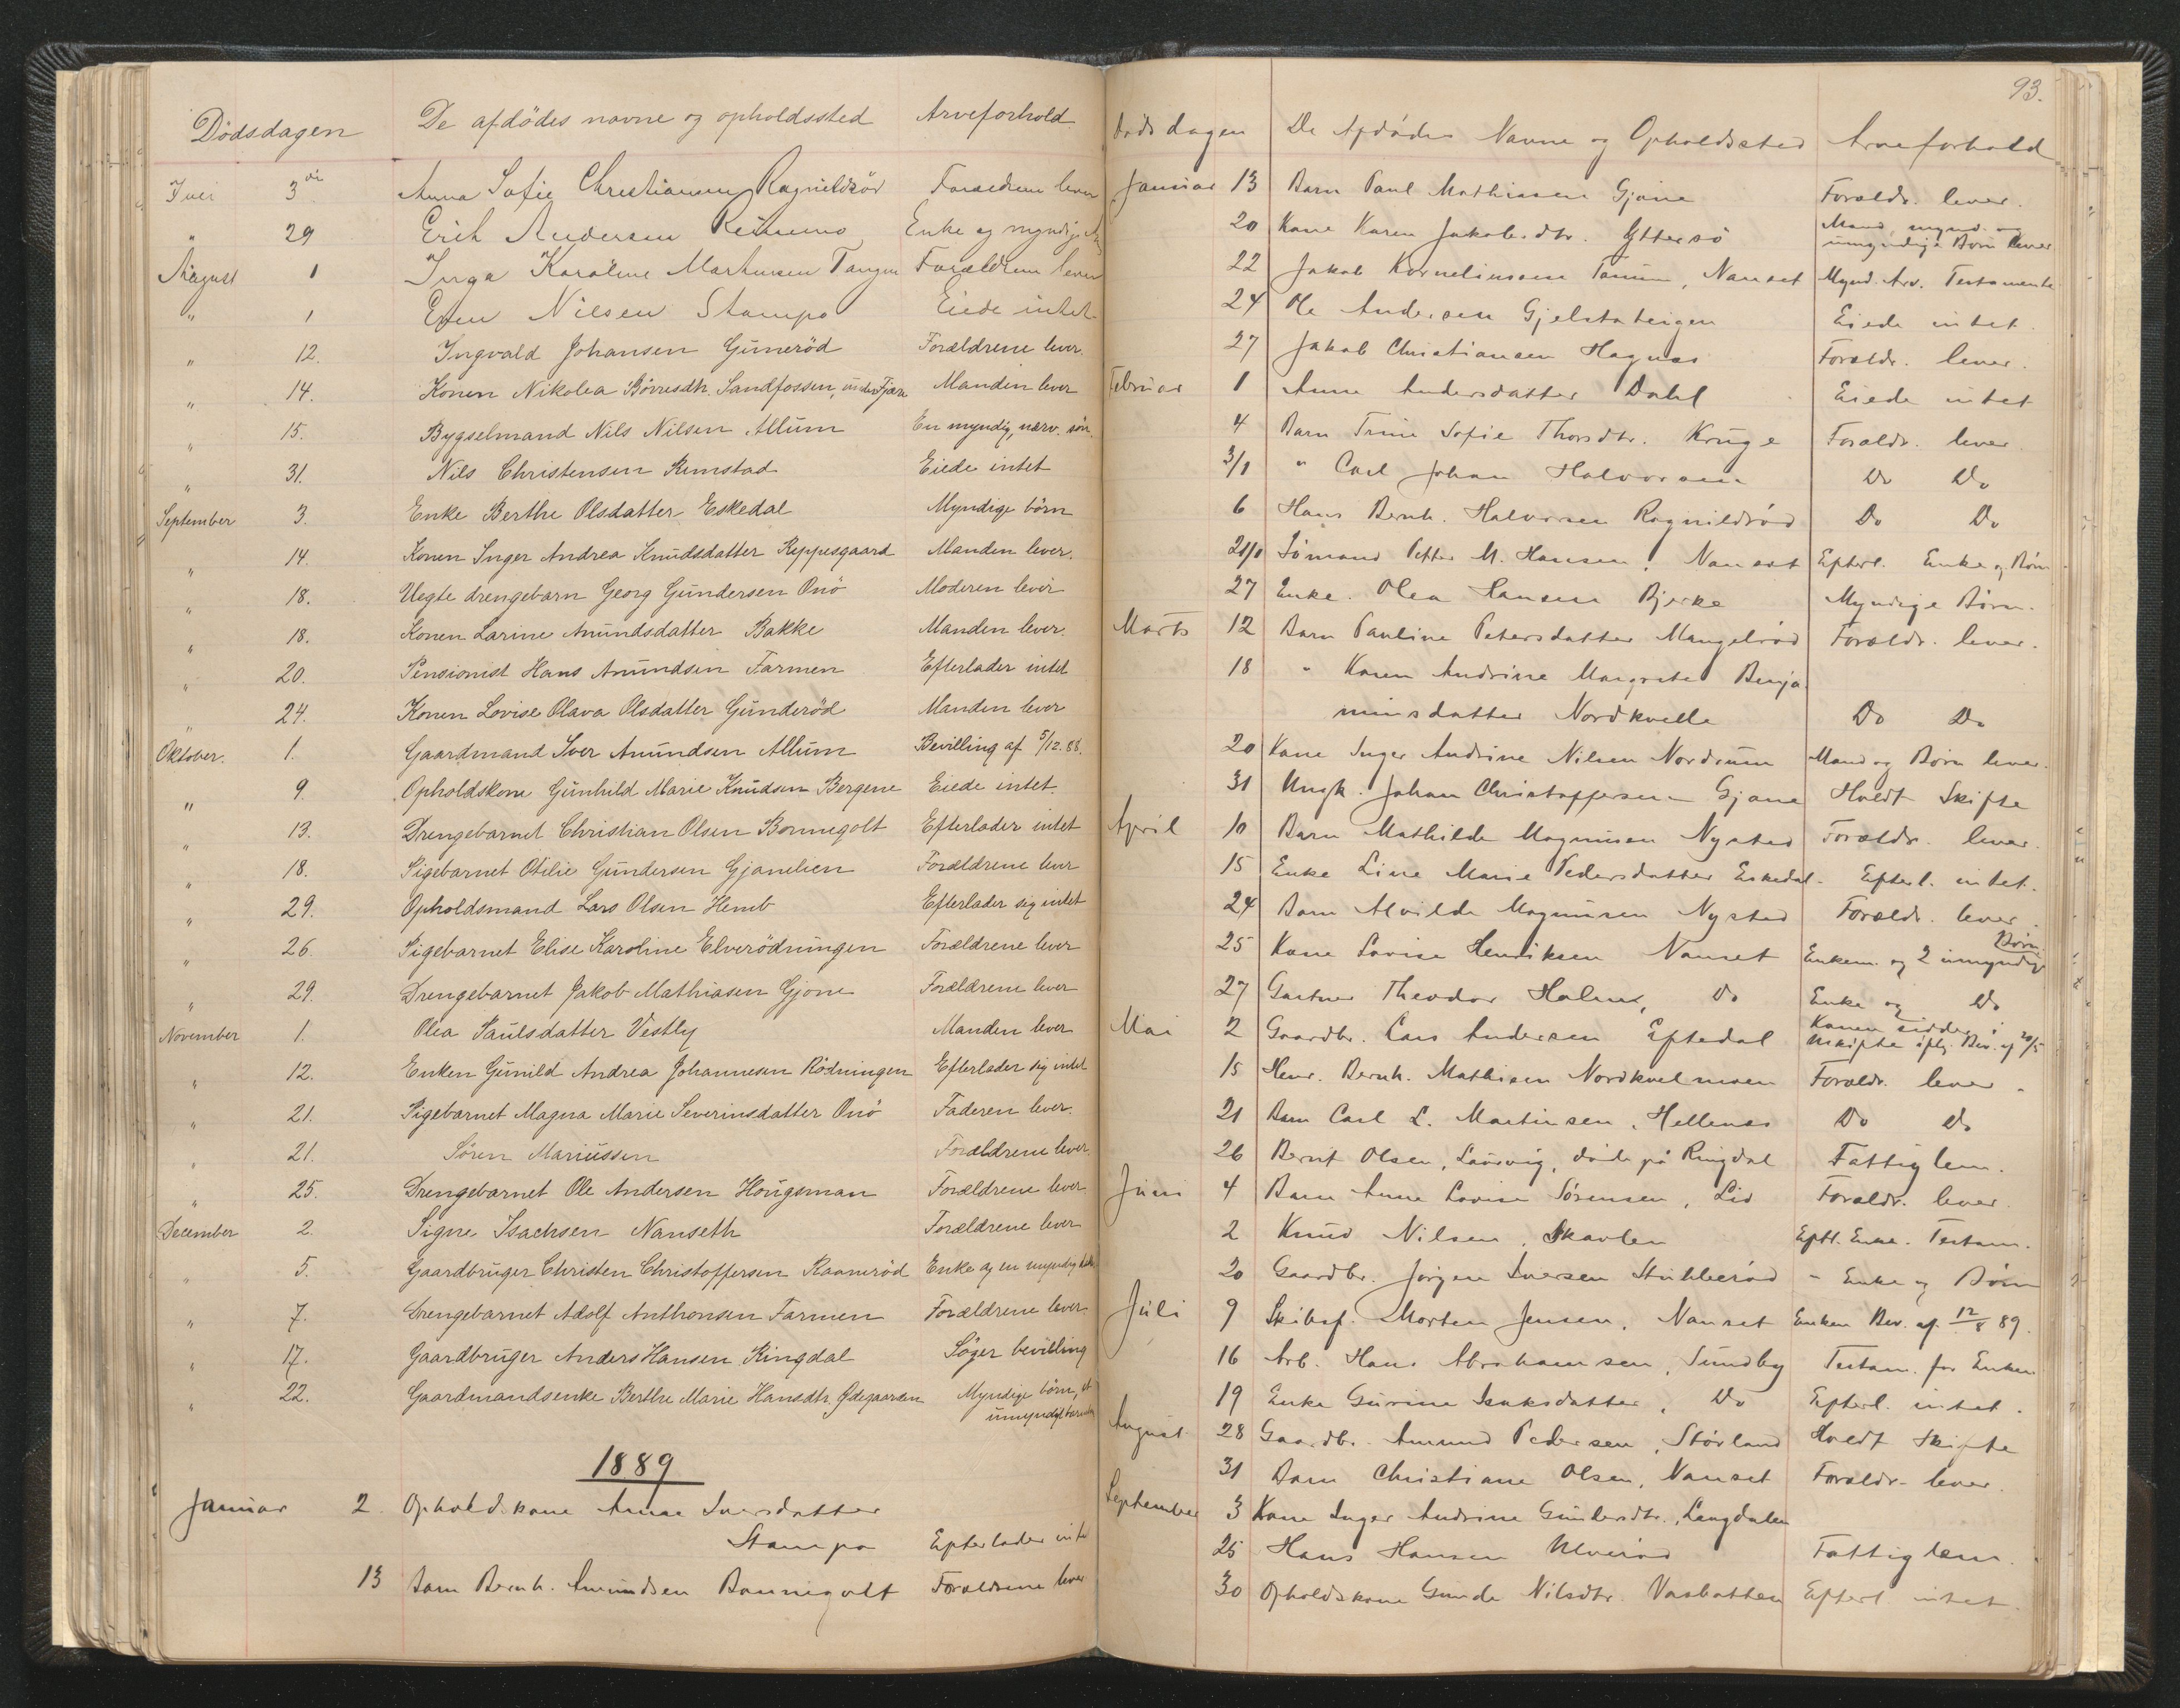 Dödsdagen De afdödes navne og opholdssted Arveforhold
Juli 3die Anna Sofie Christiansen Ragnildröd Forældrene lever
" 29 Erik Andersen Enke og myndige
August 1 Inga Karoline Martinsen Tangen Forældrene lever
" 1 Even Nilsen Stampa Eiede intet
" 12. Ingvald Johansen Gunneröd Forældrene lever.
" 14. Konen Nikolea Börresdtr. Sandfossen, under Fjære Manden lever
" 15. Bygselmand Nils Nilsen Allum En myndig, nærv. sön.
" 31. Nils Christensen Rimstad Eiede intet
September 3. Enke Berthe Olsdatter Eskedal Myndige börn
" 14. Konen Inger Andrea Knudsdatter Keppesgaard Manden lever.
" 18. Uegte drengebarn Georg Gundersen Onö Moderen lever
" 18. Konen Larine Amundsdatter Bakke Manden lever.
" 20. Pensionist Hans Amundsen Farmen Efterlader intet
" 24. Konen Lovise Olava Olsdatter Gunderöd Manden lever
Oktober. 1. Gaardmand Iver Amundsen Allum Bevilling af 5/12.88.
" 9. Opholdskone Gunhild Marie Knudsen Bergene Eiede intet.
" 13. Drengebarnet Christian Olsen Bonnegolt Efterlader intet
" 18. Pigebarnet Otilie Gundersen Gjonelien Forældrene lever
" 29. Opholdsmand Lars Olsen Hemb Efterlader sig intet
" 26. Pigebarnet Elise Karoline Elverödningen Forældrene lever
" 29. Drengebarnet Jakob Mathiasen Gjone Forældrene lever
November 1. Olea Paulsdatter Vestby Manden lever
" 12. Enken Gunild Andrea Johannesen Rödningen Efterlader sig intet
" 21. Pigebarnet Magna Marie Severinsdatter Onö Faderen lever.
" 21. Sören Mariussen Forældrene lever.
" 25. Drengebarnet Ole Andersen Hougsman Forældrene lever
December 2. Signe Isachsen Nanseth Forældrene lever
" 5. Gaardbruger Christen Christoffersen Kaameröd Enke og en myndig
" 7. Drengebarnet Adolf Anthonsen Farmen Forældrene lever.
" 17. Gaardbruger Anders Hansen Ringdal Söger bevilling
" 22. Gaardmandsenke Berthe Marie Hansdtr. Ødegaarden Myndige börn, et
umyndigt barnebarn
1889
Januar 2. Opholdskone Anne Iversdatter
Stampa Efterlader intet
13 Barn Bernh. Amundsen Bonnegolt Forældrene lever
93.
Dödsdagen De Afdödes Navne og Opholdssted Arveforhold
Januar 13 Barn Paul Mathissen Gjone Foreldr. lever.
20 Kone Karen Jakobsdtr. Yttersö Mand, mynd. og
umyndige Börn lever
22 Jakob Kornelinssen Tanum, Nanset Mynd. Arv. Testamente
24 Ole Andersen Gjelstateigen Eiede intet.
27 Jakob Christiansen Hagnæs Foreldr. lever.
Februar 1 Anne Andersdatter Dahl Eiede intet
4 Barn Trine Sofie Thorsdtr. Kruge Foreldr. lever
3/1 " Carl Johan Halvorsen Do Do
6 Hans Bernh. Halvorsen Ragnildröd Do Do
20/1 Sömand Petter M. Hansen, Nanset Efterl. Enke og Börn
27 Enke. Olea Hansen Bjerke Myndige Börn.
Marts 12 Barn Pauline Petersdatter Mangelröd Foreldr. lever.
18 " Karen Andrine Margrete Benja-
minsdatter Nordkvelle Do Do
20 Kone Inger Andrine Nilsen Nordrum Mand og Börn lever.
31 Ungk. Johan Christoffersen Gjone Holdt Skifte
April 10 Barn Mathilde Magnusen Nysted Foreldr. lever.
15 Enke Line Marie Pedersdatter Eskedal. Efterl. intet.
24 Barn Alvilde Magnusen Nysted Foreldr. lever.
25 Kone Lovise Henriksen Nanset Enkem. og 2 umyndige Börn.
27 Gartner Theodor Holm, Do Enke og Do
Mai 2 Gaardbr. Lars Andersen Eftedal Konen sidder i
uskifte iflg. Bev. af 20/5
15 Henr. Bernh. Mathisen Nordkvelmoen Foreldr. lever.
21 Barn Carl L. Martinsen, Hellenæs Do Do
26 Bernt Olsen, Laurvig, döde på Ringdal Fattiglem.
Juni 4 Barn Anne Lovise Sörensen, Lid Foreldr. lever.
2 Knud Nilsen, Skavlen Eftl. Enke. Testam.
20 Gaardbr. Jörgen Iversen Stubberöd " Enke og Börn
Juli 9 Skibsf. Morten Jensen, Nanset Enken Bev. af 12/8 89.
16 Arb. Hans Abrahamsen, Sundby Testam. for Enken
19 Enke Gurine Isaksdatter, Do Efterl. intet.
August 28 Gaardbr. Amund Pedersen, Störland Holdt Skifte
31 Barn Christiane Olsen, Nanset Foreldr. lever.
September 3 Kone Inger Andrine Gundersdtr., Langdalen
25 Hans Hansen Ulveröd Fattiglem.
30 Opholdskone Gunde Nilsdtr. Vasbotten Efterl. intet.